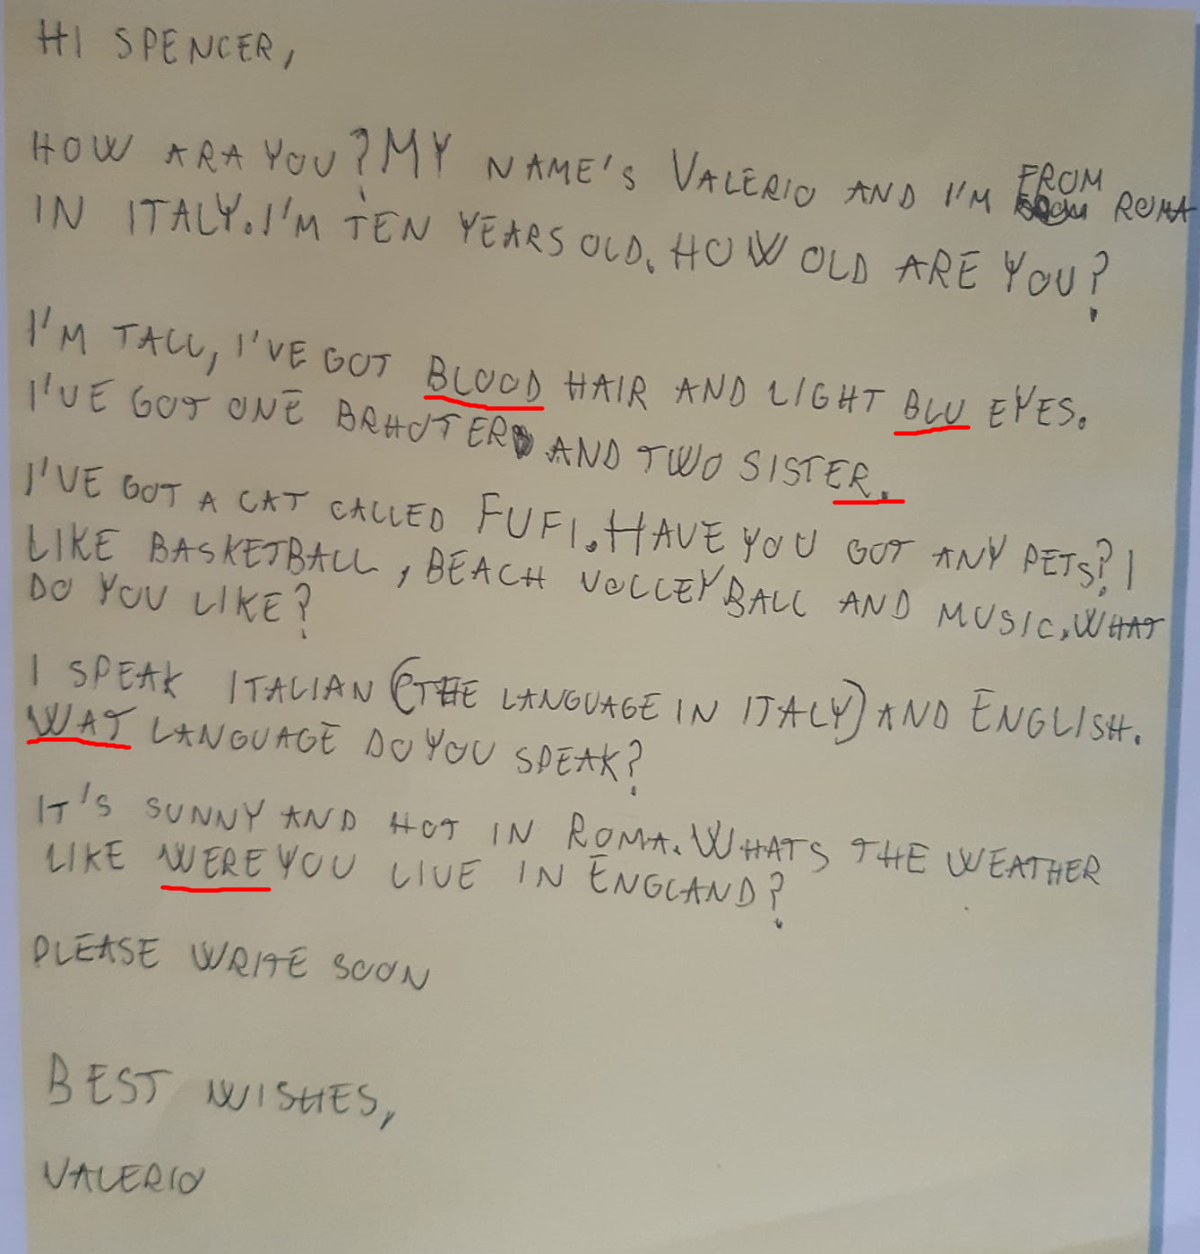 HI SPENCER,
HOW ARA YOU? MY NAME'S VALERIO AND I'M FROM ROMA
IN ITALY. I'M TEN YEARS OLD. HOW OLD ARE YOU?
I'M TALL, I'VE GOT BLOOD HAIR AND LIGHT BLU EYES.
I'VE GOT ONE BRHOTER AND TWO SISTER.
I'VE GOT A CAT CALLED FUFI. HAVE YOU GOT ANY PETS? I
LIKE BASKETBALL, BEACH VOLLEYBALL AND MUSIC, WHAT
DO YOU LIKE?
I SPEAK ITALIAN (THE LANGUAGE IN ITALY) AND ENGLISH.
WAT LANGUAGE DO YOU SPEAK?
IT'S SUNNY AND HOT IN ROMA. WHATS THE WEATHER
LIKE WERE YOU LIVE IN ENGLAND?
PLEASE WRITE SOON
BEST WISHES,
VALERIO